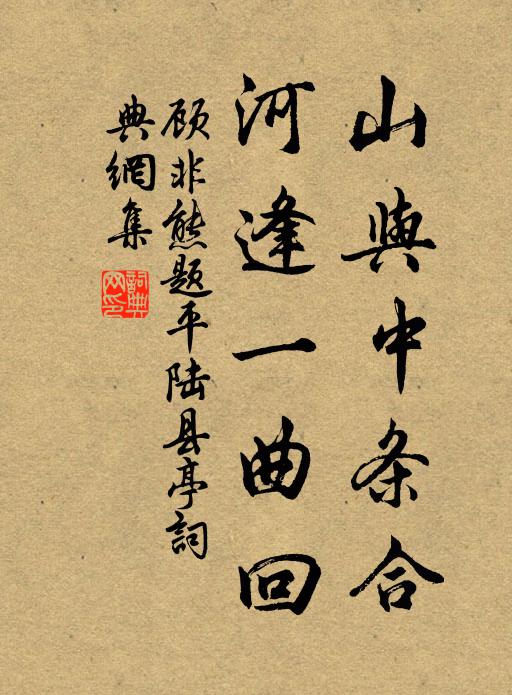 山與中条合
河逢一曲回
顾非熊题平陆县亭詞
典網集
詞典
网印